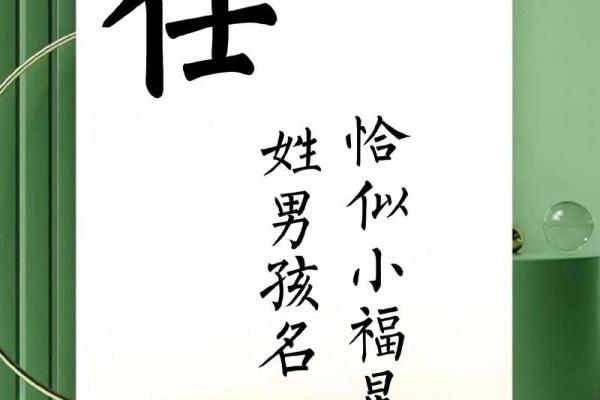 任
姓男孩名
恰似小福星